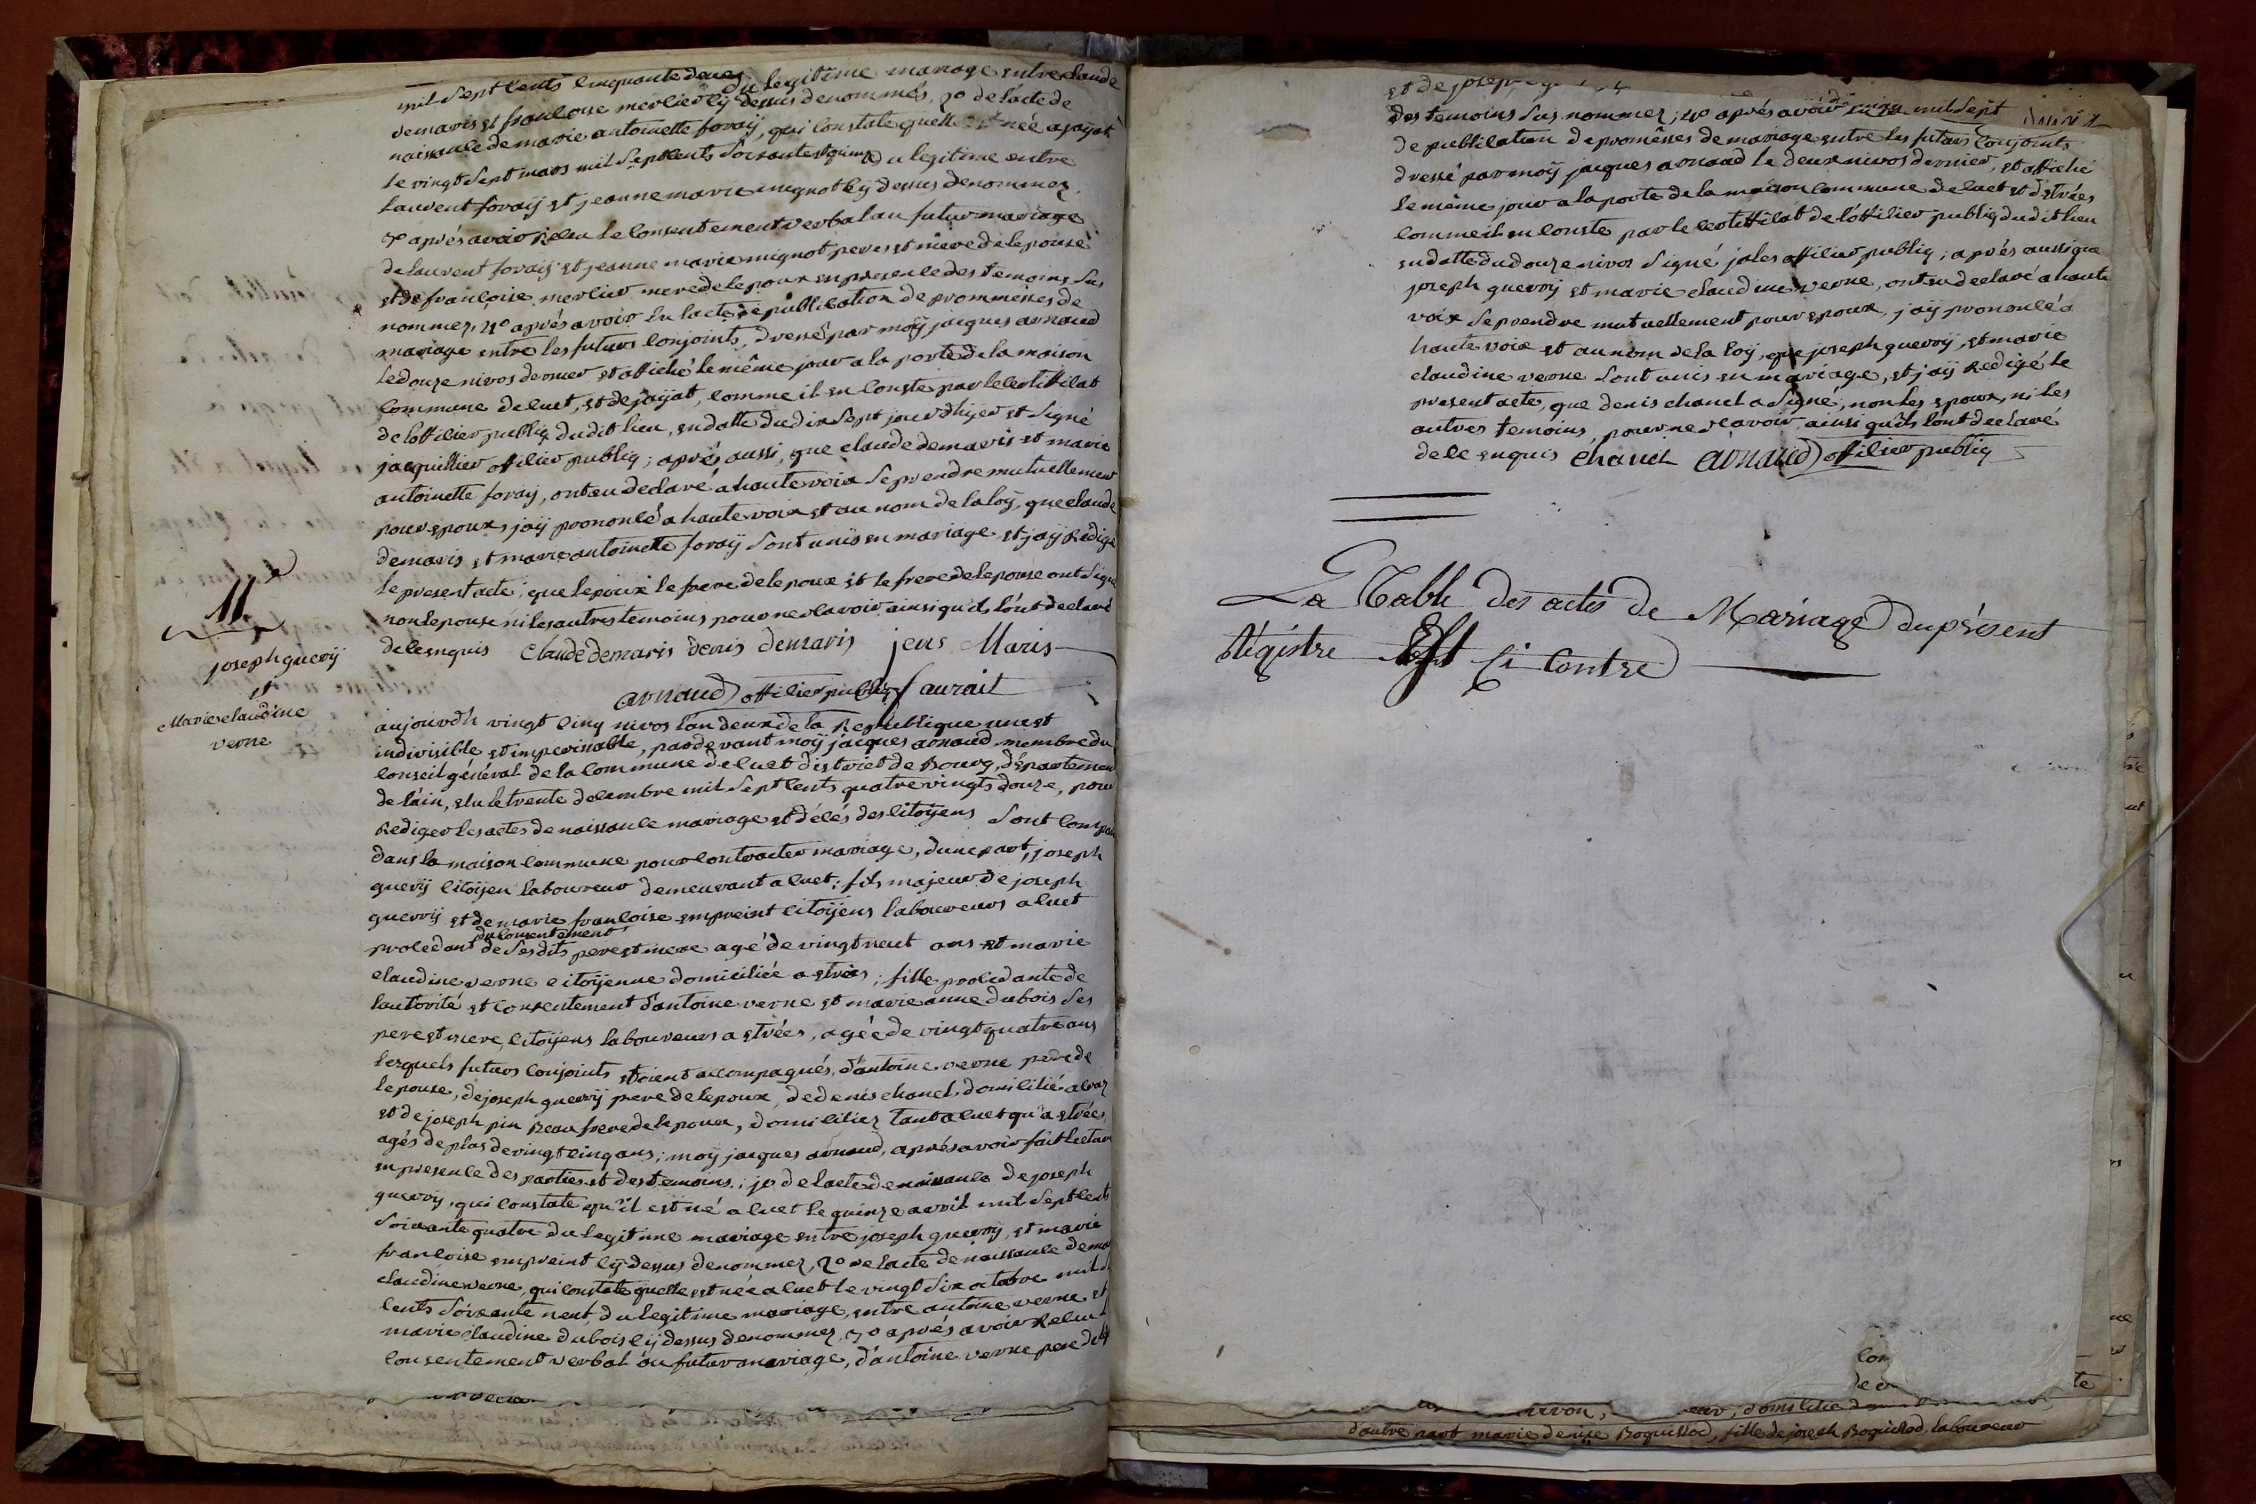 mil sept cents cinquante deux du legitime mariage entre claude
demaris et francoise merlier cy dessus denommés, 2o de lacte de
naissance de marie antoinette foraÿ, qui constate quelle est née a jaÿat
le vingt sept mars mil sept cents soixante et quinze du legitime entre
laurent foraÿ et jeanne marie mignot cy dessus denommez
3o aprés avoir Relcu le consentement verbal au futur mariage
de laurent foraiÿ et jeanne marie mignot peres et mere de lepouse
et de francoise merlier mere de lepoux en presence des temoins sus
nommez, 4o aprés avoir lu lacte de publication de prommesses de
mariage entre les futurs conjoints, dressé par moÿ jacques arnaud
le douze nivos dernier et affiché le même jour a la porte de la maison
commune de cuet, et de jaÿat, comme il en conste par le certifficat
de lofficier publiq dudit lieu, en datte du dix sept jour dhyer et signé
jacquillier officier publiq ; aprés aussi, que claude demaris et marie
antoinette foraÿ, ont eu declaré a haute voix se prendre mutuellement
pour epoux, jaÿ prononcé a haute voix et au nom de la loÿ, que claude
demaris et marie antoinette foraÿ sont unis en mariage et jaÿ Redigé
le present acte, que lepoux le frere de lepoux et le frere de lepouse ont signé
non lepouse ni les autres temoins pour ne scavoir ainsi quils lont declaré
de ce enquis claude demaris denis demaris jens Maris
arnaud officier publiq f aurait
11
joseph gueriÿ
et
Marie claudine
verne
aujourdh vingt cinq nivos lan deux de la Republique une et
indivisible et imperissable, pardevant moÿ jacques arnaud membre du
conseil général de la commune de cuet district de Bourg, département
de lain, elu le trente decembre mil sept cents quatre vingts douze, pour
Rediger les actes de naissance mariage et décés des citoÿens sont comparu
dans la maison commune pour contracter mariage, dune part, joseph
guerÿ citoÿen laboureur demeurant a cuet ; fils majeur de joseph
guerrÿ et de marie francoise empreint citoÿens laboureurs a cuet
procedant du consentement de ses dits pere et mere agé de vingt neuf ans et marie
claudine verne citoÿenne domiciliée a etrées ; fille procedante de
lautorité et consentement d'antoine verne et marie anne dubois ses
pere et mere, citoÿens laboureurs a etrées, agée de vingt quatre ans
lesquels futurs conjoints etoient accompagnés, d'antoine verne pere de
lepouse, de joseph guerrÿ pere de lepoux, de denis chanel domicilié a
et de joseph pin Beau frere de lepoux, domiciliez tant a cuet qu'a etrées
agés de plus de vingt cinq ans ; moÿ jacques arnaud, aprés avoir fait lectur
en presence des parties et des temoins ; 1o de lacte de naissance de joseph
guerrÿ, qui constate qu'il est né a cuet le quinze avril mil sept cents
soixante quatre du legitime mariage entre joseph guerrÿ, et marie
francoise empreint cÿ dessus denommez, 2o de lacte de naissance de ma
claudine verne, qui constate quelle est née a cuet le vingt six octobre mil s
cents soixante neuf, du legitime mariage, entre antoine verne et
marie claudine dubois cÿ dessus denommez, 3o aprés avoir Relcu l
consentement verbal au futur mariage, d'antoine verne pere de l
et de joseph
des temoins sus nommez ; 4o aprés avoir mil sept
de publication de promêsses de mariage entre les futurs conjoints
dressé par moÿ jacques arnaud le deux nivos dernier, et affiché
le même jour a la porte de la maison commune de cuet et d'etrées
comme il en conste par le certifficat de lofficier publiq dudit lieu
en datte du douze nivos signé joles officier publiq ; aprés aussi que
joseph guerrÿ et marie claudine verne, ont eu declaré a haute
voix se prendre mutuellement pour epoux, jaÿ prononcé a
haute voix et au nom de la loÿ, que joseph guerrÿ, et marie
claudine verne sont unis en mariage, et jaÿ Redigé le
present acte, que denis chanel a signé, non les epoux, ni les
autres temoins, pour ne scavoir, ainsi quils lont declaré
de ce enquis chanel arnaud officier publiq
La Table des actes de Mariage du présent
Régistre Est Ci Contre
d'autre part marie denise Boquillod, fille de joseph Boquillod laboureur